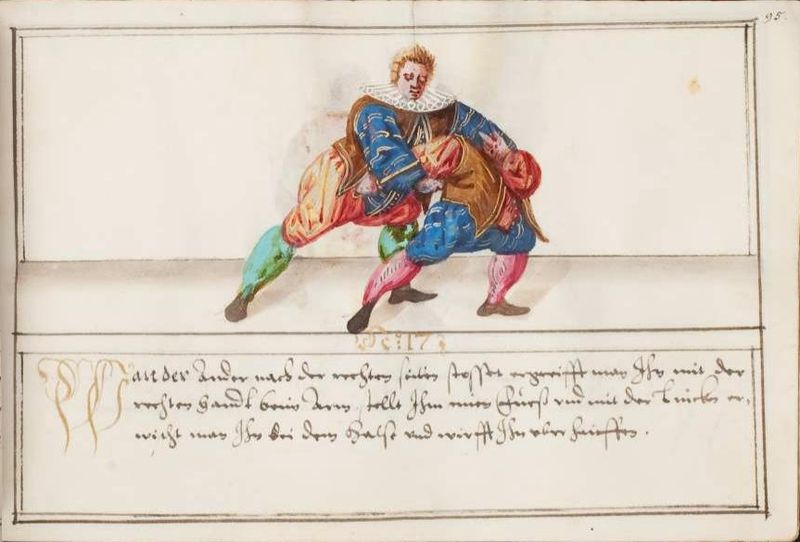 95.
St: 17.
Wan der Ander nach der rechten seiten stosset ergreifft man Ihn mit der
rechten handt beim Arm, stelt Ihm einen Fuess und mit der Lincken er-
wischt man Ihn bei dem Halss und wirfft Ihn uber hauffen.